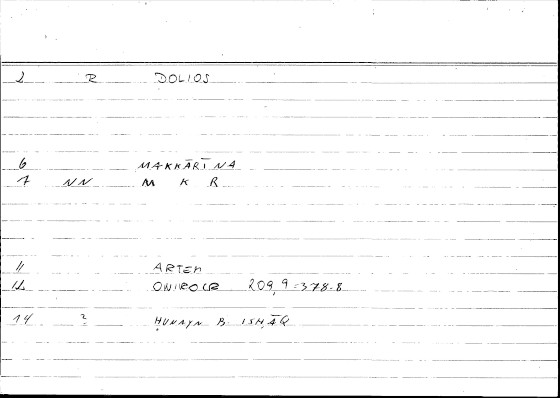 2 R DOLIOS
6 MAKKĀRĪNA
7 NN M K R
11 ARTEM
12 ONIROCR 209,9=378.8
14 2 ḤUNAYN B. ISḤĀQ